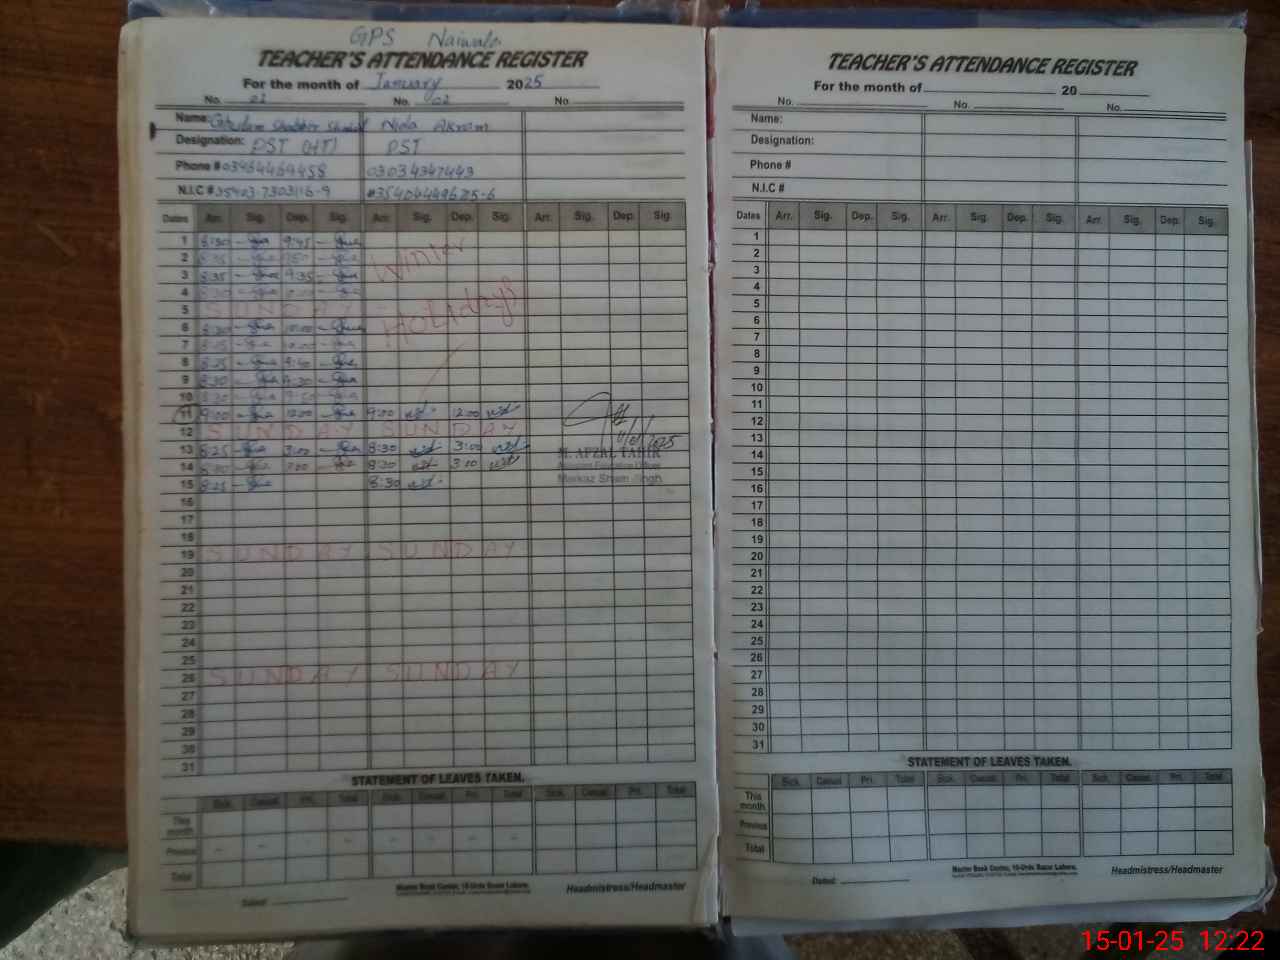 GPS Naiwala
TEACHER'S ATTENDANCE REGISTER
For the month of January 2025
No. 01 No. 02 No.
Name: Ghulam Shabbir Nida Akram
Designation: PST (HT) PST
Phone # 03464469458 03034347443
N.I.C # 35403-7303116-9
Dates Arr. Sig. Dep. Sig. Arr. Sig. Dep. Sig. Arr. Sig. Dep. Sig.
1 8:30 9:45
Winter
2
3 8:35 9:35
4
Holidays
5 SUNDAY
6 8:30 10:00
7 8:25 10:00
8 8:25 9:40
9 8:30 9:30
10 8:30 9:50
11 9:00 12:00 9:00 12:00
12 SUNDAY SUNDAY
11/01/2025
13 8:25 3:00 8:30 3:00
M. AFZAL TAHIR
14 8:30 3:00 8:30 3:00
Assistant Education Officer
15 8:25 8:30
Markaz Sham Singh
16
17
18
19 SUNDAY SUNDAY
20
21
22
23
24
25
26 SUNDAY SUNDAY
27
28
29
30
31
STATEMENT OF LEAVES TAKEN.
Sick. Casual. Pri. Total Sick. Casual. Pri. Total Sick. Casual. Pri. Total
This month
Previous - - - - - -
Total
Master Book Center, 16-Urdu Bazar Lahore.
Headmistress/Headmaster
Dated:
TEACHER'S ATTENDANCE REGISTER
For the month of 20
No. No. No.
Name:
Designation:
Phone #
N.I.C #
Dates Arr. Sig. Dep. Sig. Arr. Sig. Dep. Sig. Arr. Sig. Dep. Sig.
1
2
3
4
5
6
7
8
9
10
11
12
13
14
15
16
17
18
19
20
21
22
23
24
25
26
27
28
29
30
31
STATEMENT OF LEAVES TAKEN.
Sick. Casual. Pri. Total Sick. Casual. Pri. Total Sick. Casual. Pri. Total
This month
Previous
Total
Master Book Center, 16-Urdu Bazar Lahore.
Headmistress/Headmaster
Dated:
15-01-25 12:22